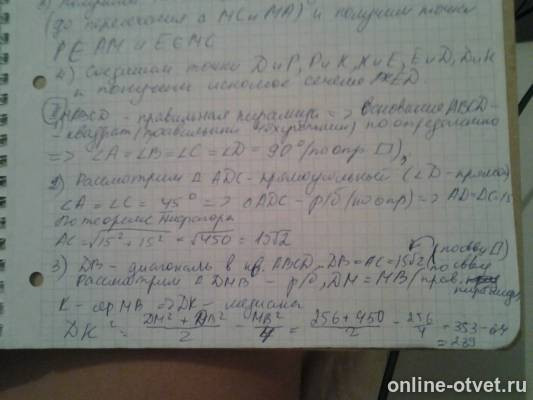 (до пересечения с MC и MA) и получим точки
P∈AM и E∈MC
4) Соединим точки D и P, P и K, K и E, E и D,
и получим искомое сечение PKED
MABCD - правильная пирамида => основание ABCD -
квадрат (правильный четырехугольник) по определению
=> ∠A=∠B=∠C=∠D = 90° (по опр. □),
2) Рассмотрим Δ ADC - прямоугольный (∠D - прямой)
∠A = ∠C = 45° => ΔADC - р/б (по опр) => AD=DC=15
По теореме Пифагора
AC = √15²+15² = √450 = 15√2
(по св-ву □)
3) DB - диагональ в кв. ABCD, DB = AC = 15√2
Рассмотрим Δ DMB - р/б, DM = MB (прав. пирамида)
K - ср MB => DK - медиана
DK² = DM² + DB² / 2 - MB² / 4 = 256+450 / 2 - 256 / 4 = 353-64
= 289
online-otvet.ru